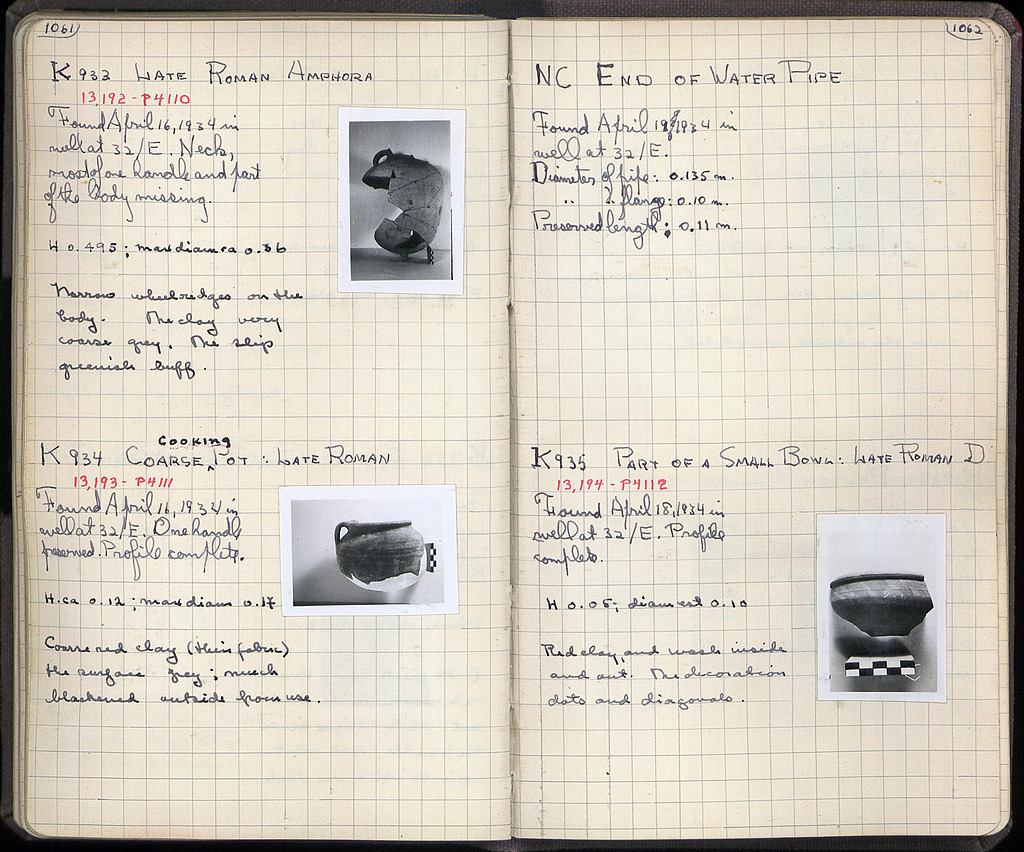 1061
K 933 LATE ROMAN AMPHORA
13,192 - P4110
Found April 16, 1934 in
well at 32/E. Neck,
most of one handle and part
of the body missing.
H 0.495; max diam ca 0.36
Narrow wheelridges on the
body. The clay very
coarse grey. The slip
greenish buff.
COOKING
K 934 COARSE ^ POT : LATE ROMAN
13,193 - P4111
Found April 16, 1934 in
well at 32/E. One handle
preserved. Profile complete.
H. ca 0.12; max diam 0.17
Coarse red clay (thin fabric)
the surface grey; much
blackened outside from use.
1062
NC END OF WATER PIPE
Found April 1934 in
well at 32/E.
Diameter of pipe: 0.135 m.
" " flange: 0.10 m.
Preserved length: 0.11 m.
K 935 PART OF A SMALL BOWL: LATE ROMAN D
13,194 - P4112
Found April 18, 1934 in
well at 32/E. Profile
complete.
H 0.05; diam est 0.10
Red clay, and wash inside
and out. The decoration
dots and diagonals.